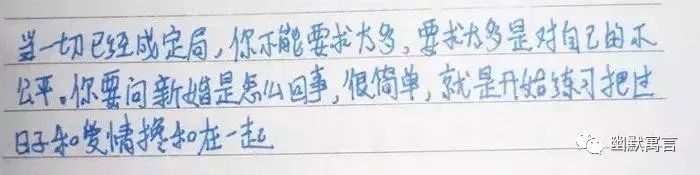 当一切已经成定局，你不能要求太多，要求太多是对自己的不
公平。你要问新婚是怎么回事，很简单，就是开始练习把过
日子和爱情搀和在一起
幽默寓言